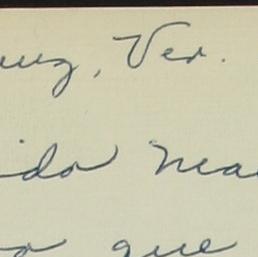 uz, Ver.
ido Ma
o que